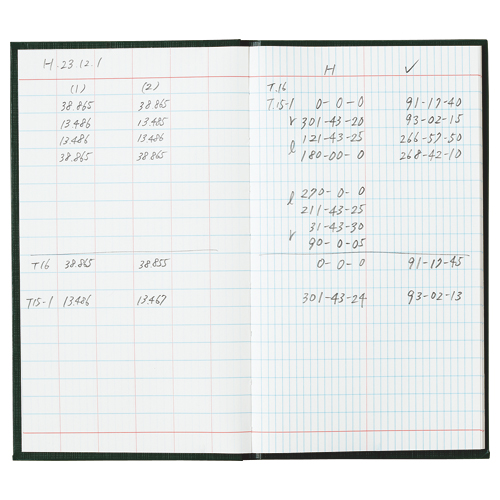 H.23.12.1
(1) (2)
38.865 38.865
13.486 13.485
13.486 13.486
38.865 38.865
T16 38.865 38.855
T15-1 13.486 13.467
H V
T.16
T.15-1 0-0-0 91-17-40
r 301-43-20 93-02-15
l 121-43-25 266-57-50
180-00-0 268-42-10
l 270-0-0
211-43-25
31-43-30
r 90-0-05
0-0-0 91-17-45
301-43-24 93-02-13